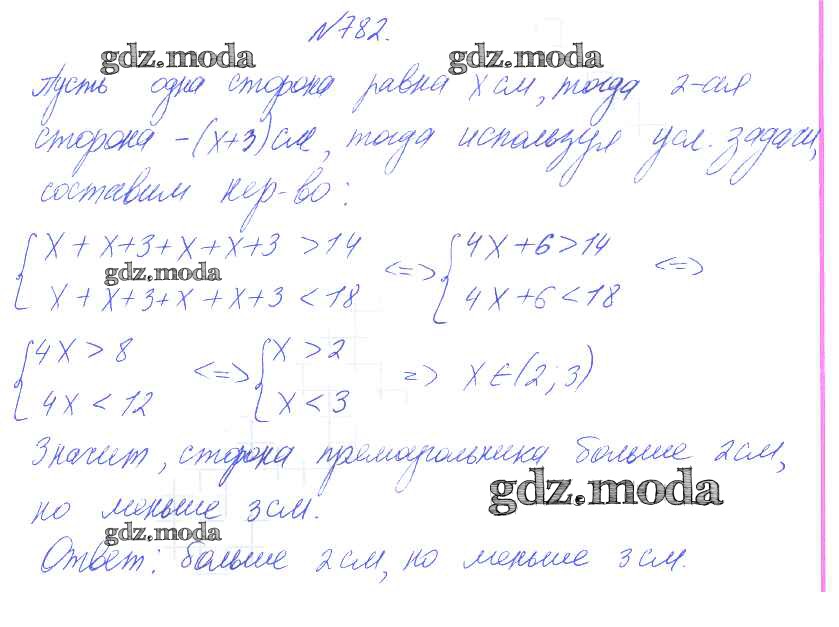 №782.
gdz.moda gdz.moda
Пусть одна сторона равна x см, тогда 2-ая
сторона - (x+3) см, тогда используя усл. задачи,
составим нер-во:
{ x + x+3 + x + x+3 > 14 <=> { 4x + 6 > 14 <=>
gdz.moda
x + x+3 + x + x+3 < 18 4x + 6 < 18
{ 4x > 8 <=> { x > 2 => x ∈ (2; 3)
4x < 12 x < 3
Значит, сторона прямоугольника больше 2см,
gdz.moda
но меньше 3см.
gdz.moda
Ответ: больше 2см, но меньше 3см.